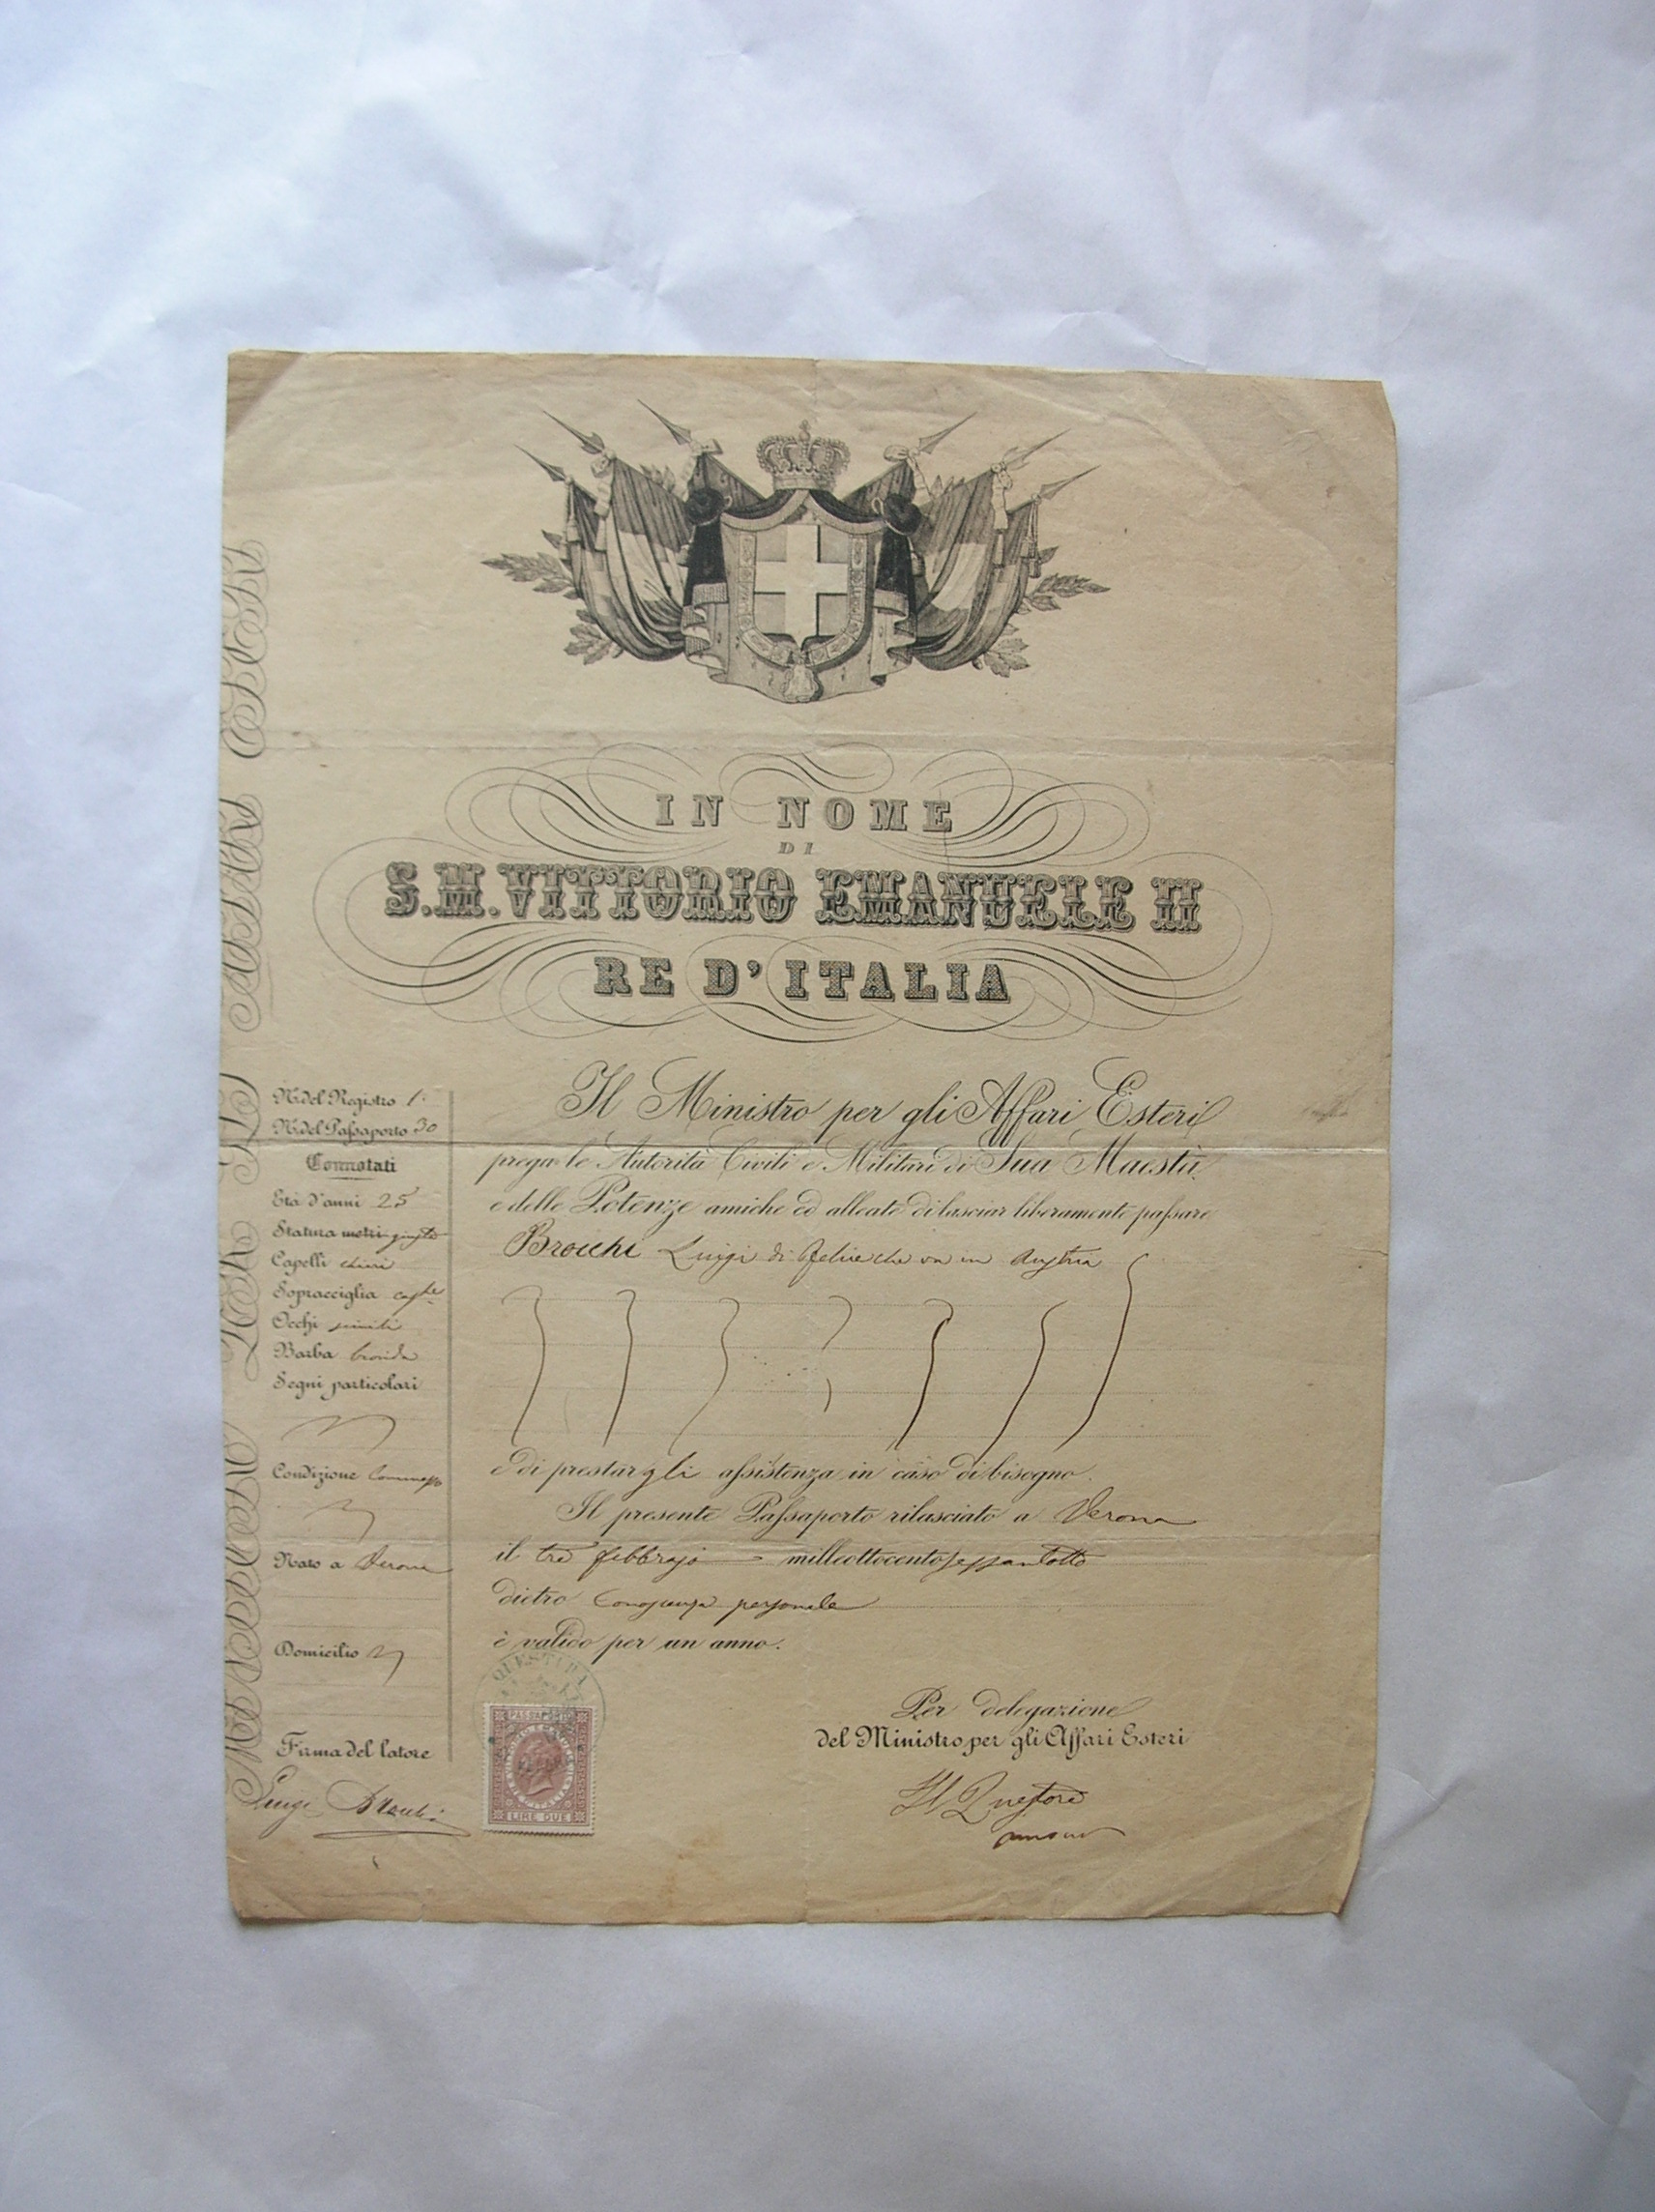 IN NOME
DI
S. M. VITTORIO EMANUELE II
RE D'ITALIA
MINISTERO PER GLI AFFARI ESTERI
N. del Registro 1
N. del Passaporto 30
Connotati
Età d'anni 25
Statura metri giusta
Capelli chiari
Sopracciglia
Occhi simili
Barba bionda
Segni particolari
Condizione Commesso
Nato a Verona
Domicilio
Firma del latore
Luigi Brocchi
Il Ministro per gli Affari Esteri
prega le Autorità Civili e Militari di Sua Maestà
e delle Potenze amiche ed alleate di lasciar liberamente passare
Brocchi Luigi di Felice che va in Austria
e di prestargli assistenza in caso di bisogno.
Il presente Passaporto rilasciato a Verona
il tre febbrajo milleottocentosessantotto
dietro conoscenza personale
è valido per un anno.
QUESTURA
PASSAPORTI
LIRE DUE
Per delegazione
del Ministro per gli Affari Esteri
Il Questore